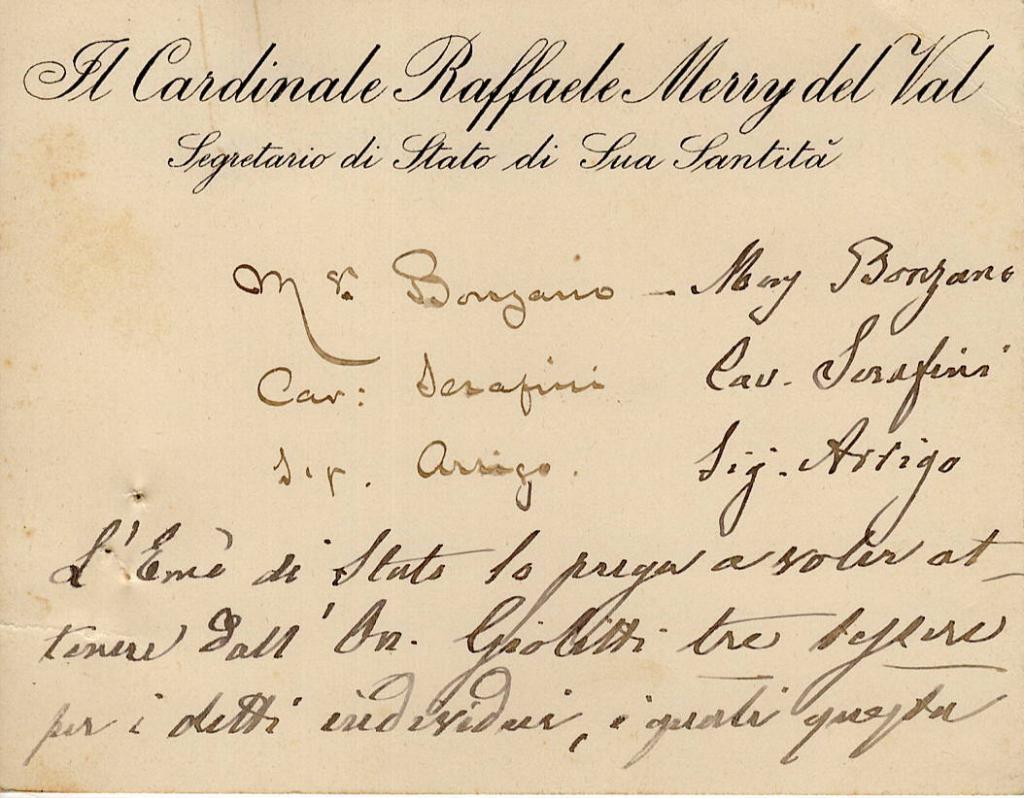 Il Cardinale Raffaele Merry del Val
Segretario di Stato di Sua Santità
Mr. Bonzano – Mong Bonzano
Cav: Serafini Cav. Serafini
Sig. Arrigo. Sig. Arrigo
L'Emo di Stato lo prega a voler ot-
tenere dall'On. Giolitti tre tessere
per i detti individui, i quali questa